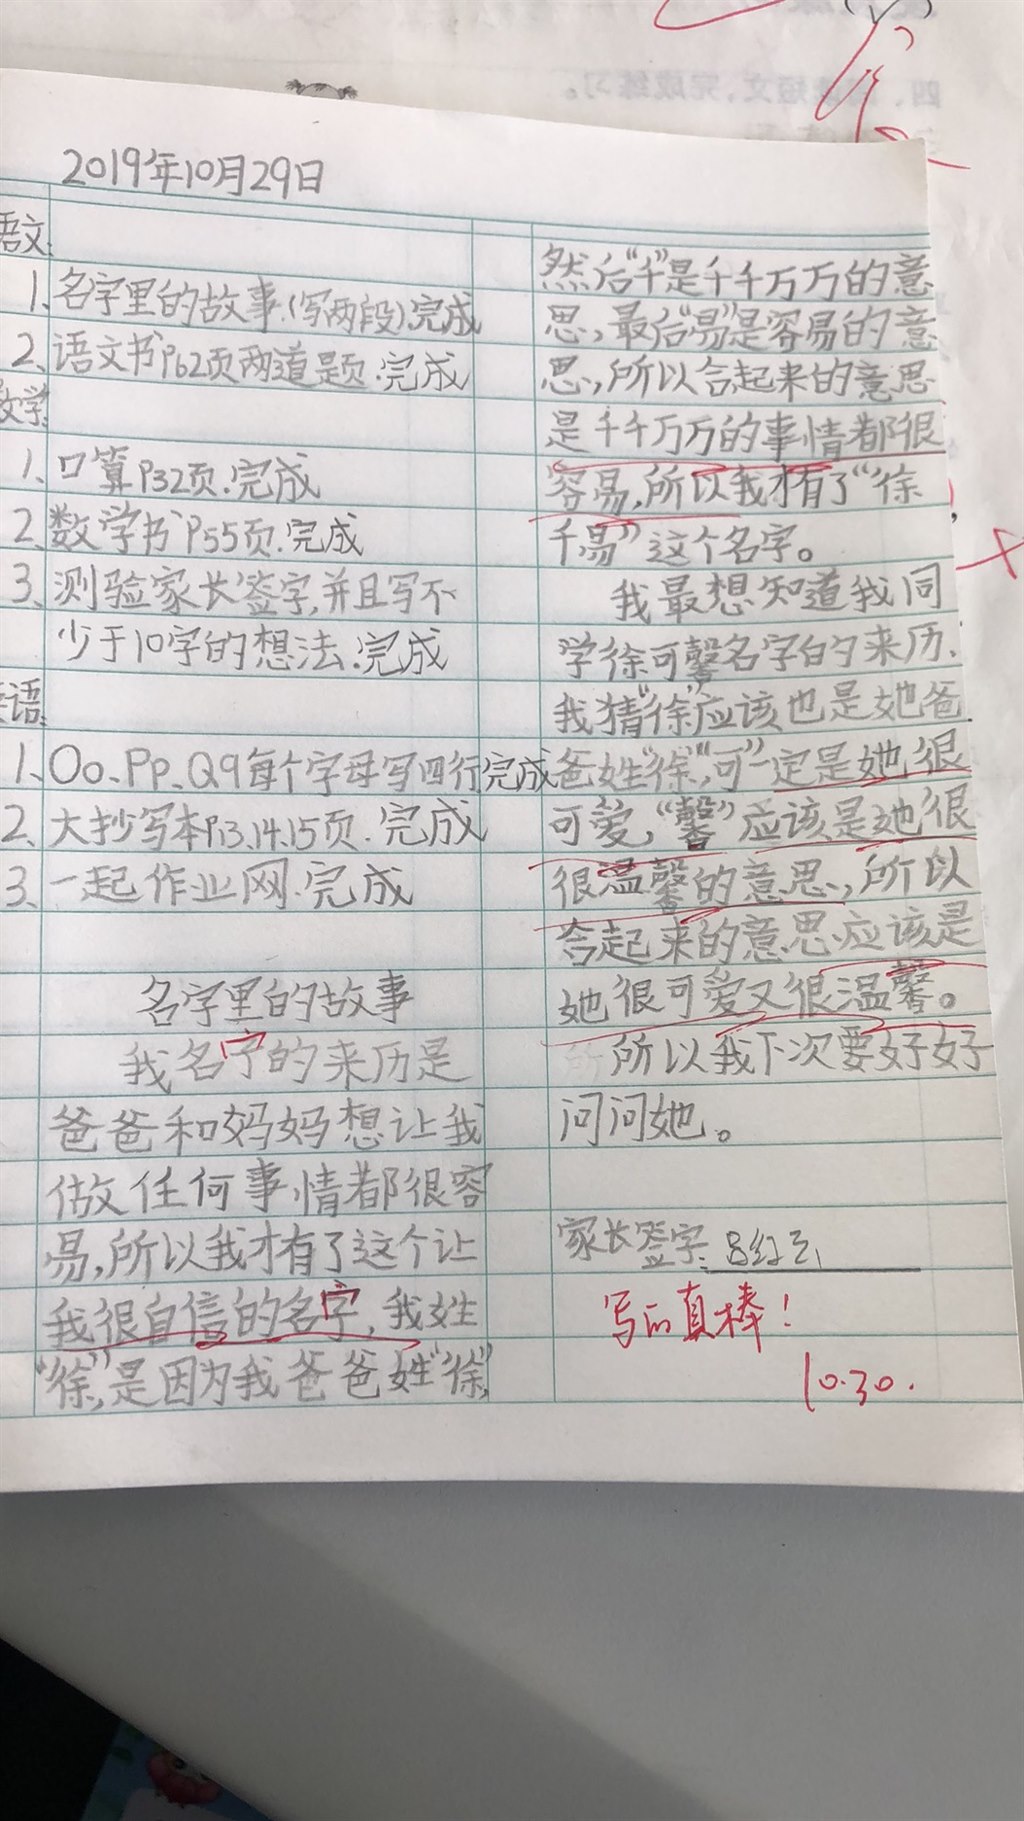 2019年10月29日
语文:
1、名字里的故事.(写两段).完成
2、语文书P62页两道题.完成
数学:
1、口算P32页.完成
2、数学书P55页.完成
3、测验家长签字,并且写不
少于10字的想法.完成
英语:
1、Oo、Pp、Qq每个字母写四行完成
2、大抄写本P13、14、15页.完成
3、一起作业网.完成
名字里的故事
我名字的来历是
爸爸和妈妈想让我
做任何事情都很容
易,所以我才有了这个让
我很自信的名字,我姓
“徐”,是因为我爸爸姓“徐”,
然后“千”是千千万万的意
思,最后“易”是容易的意
思,所以合起来的意思
是千千万万的事情都很
容易,所以我才有了“徐
千易”这个名字。
我最想知道我同
学徐可馨名字的来历.
我猜“徐”应该也是她爸
爸姓“徐”,“可”一定是她很
可爱,“馨”应该是她很
很温馨的意思,所以
合起来的意思应该是
她很可爱又很温馨。
所以我下次要好好
问问她。
家长签字:
写的真棒!
10.30.
四、 短文,完成练习。